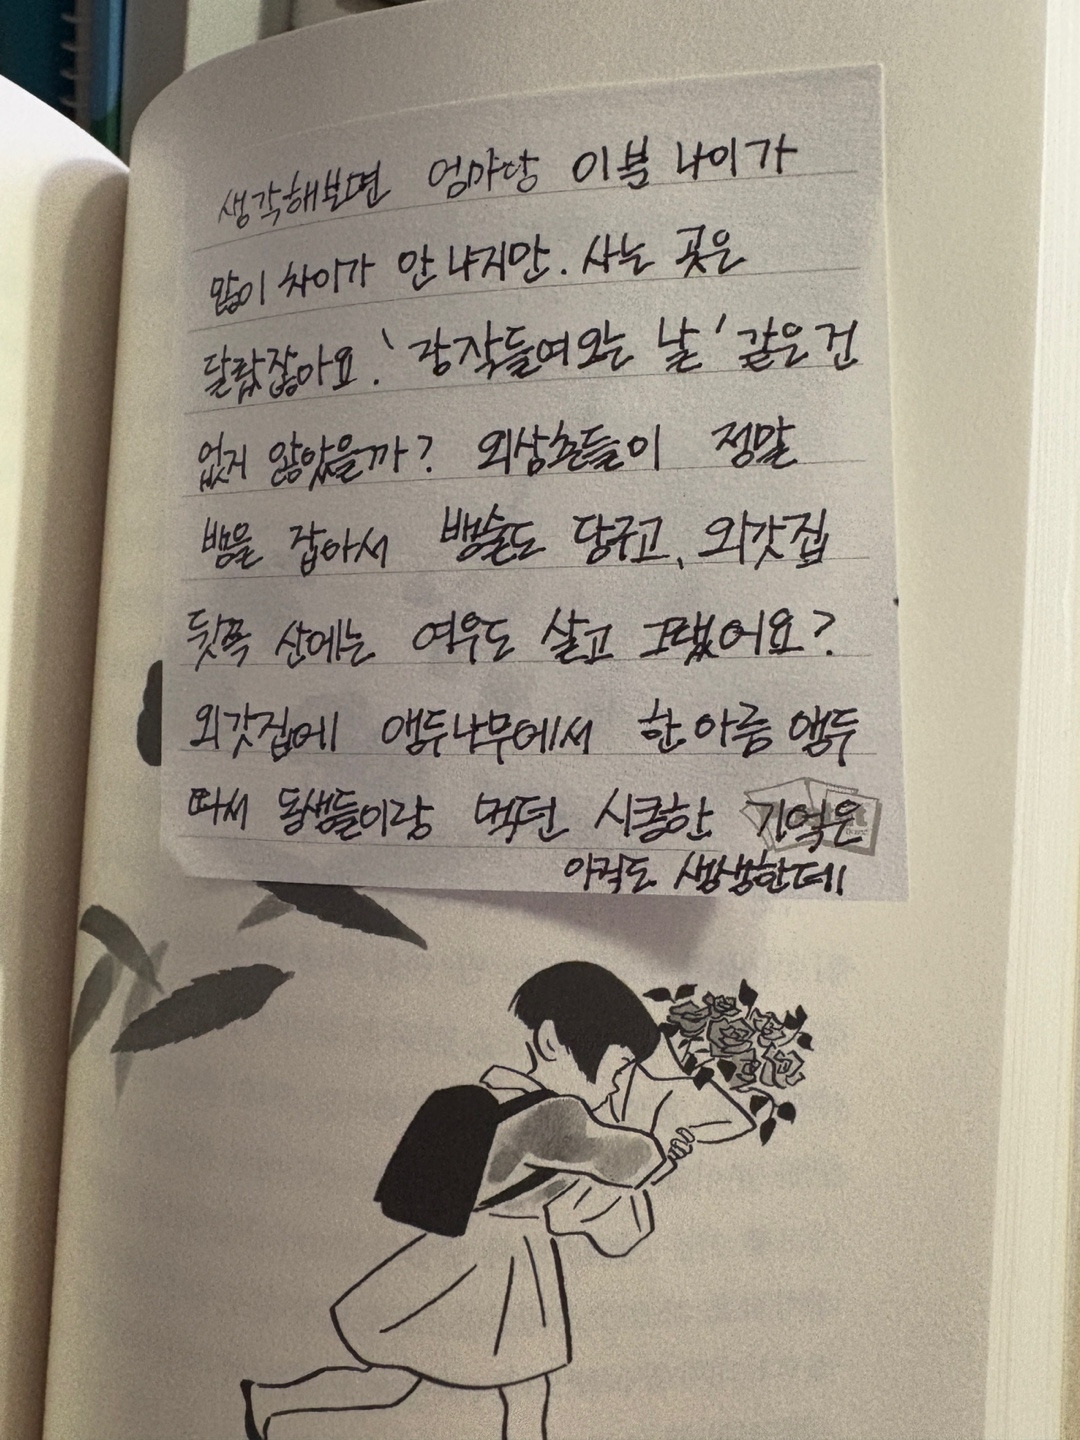 생각해보면 엄마랑 이분 나이가
많이 차이가 안 나지만. 사는 곳은
달랐잖아요. '장작들여오는 날' 같은 건
없지 않았을까? 외삼촌들이 정말
뱀을 잡아서 뱀술도 담구고, 외갓집
뒷쪽 산에는 여우도 살고 그랬어요?
외갓집에 앵두나무에서 한아름 앵두
따서 동생들이랑 먹던 시큼한 기억은
아직도 생생한데